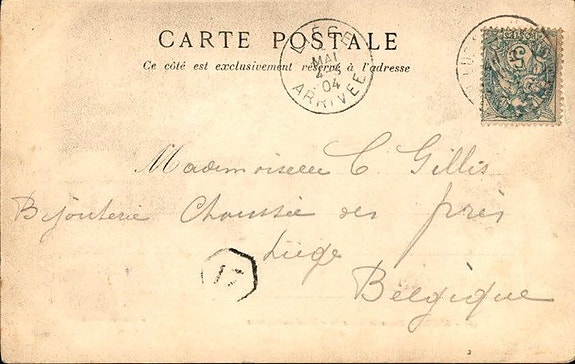 CARTE POSTALE
Ce côté est exclusivement réservé à l'adresse
LIÉGE
MAI
4
04
ARRIVÉE
5
Mademoiselle C Gillis
Bijouterie Chaussée des prés
Liége
Belgique
17